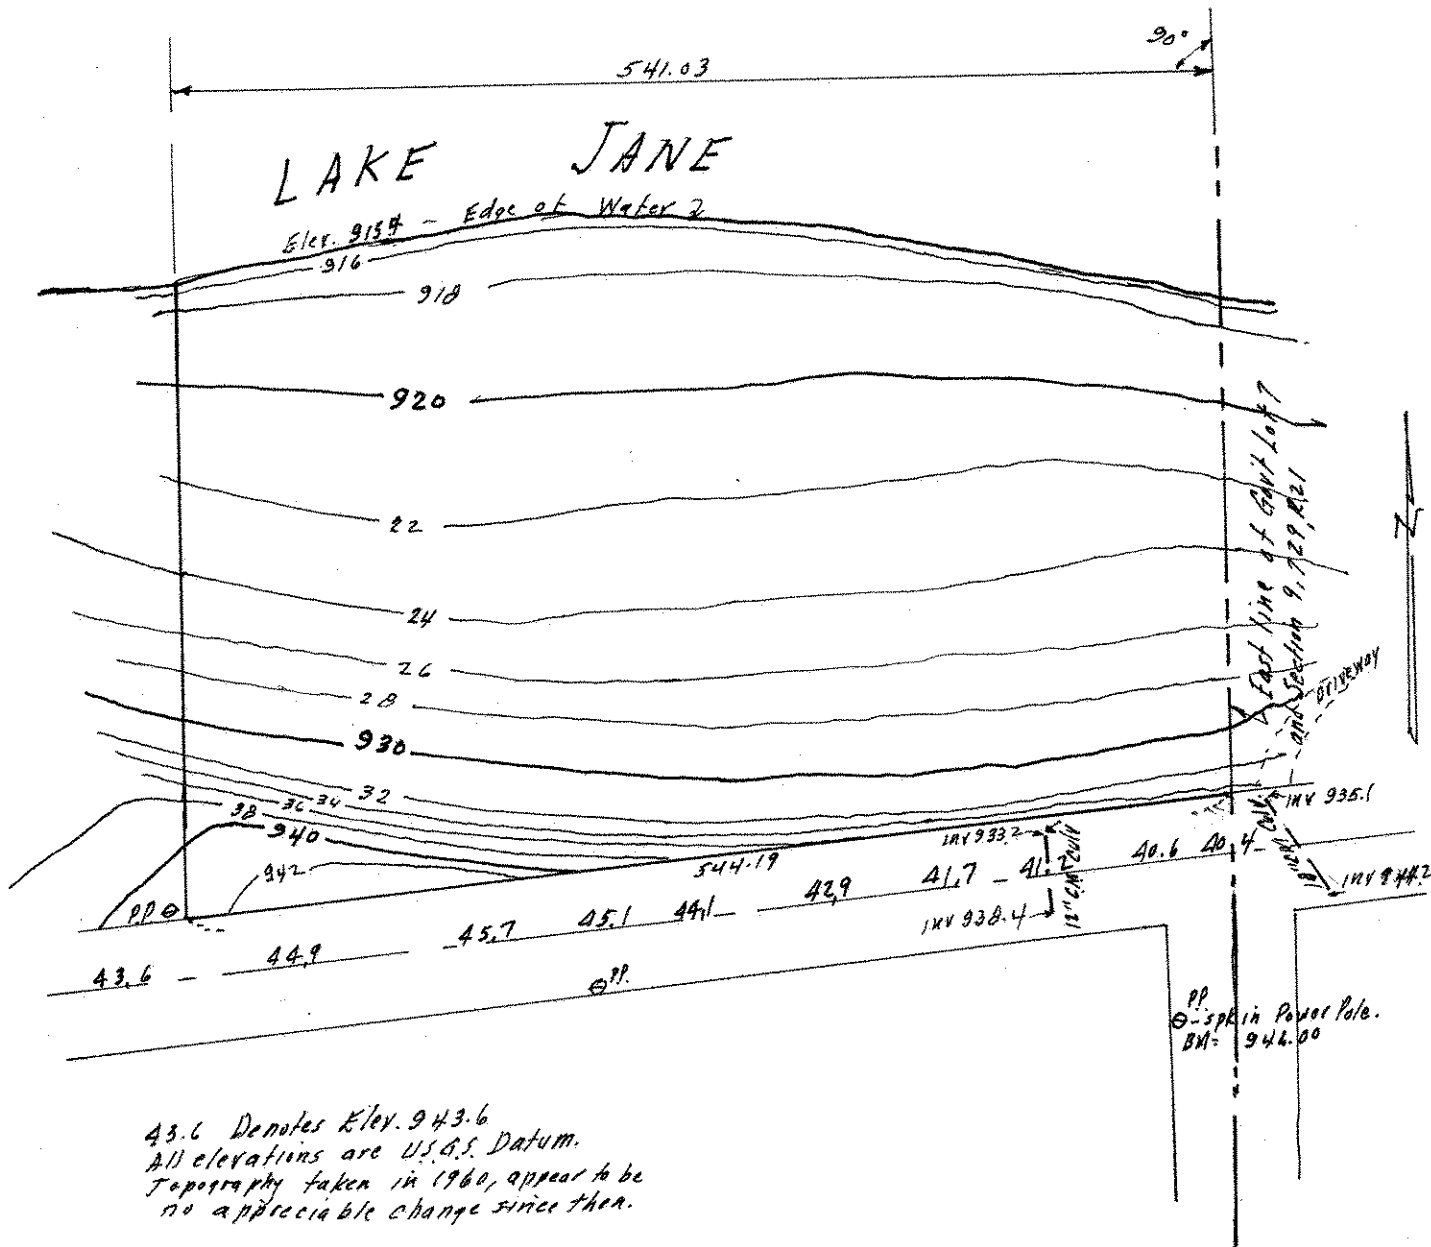 90°
541.03
LAKE JANE
Elev. - Edge of Water
916
918
920
22
24
26
28
930
32
34
36
38
940
942
East line of Gov't Lot 7
and Section 9, T29, R21
DRIVEWAY
INV 935.1
INV 933.2
544.19
12" CM CULV
INV 938.4
18" CULV.
P.P.
43.6
44.9
45.7
45.1
44.1
42.9
41.7
40.6
40.4
PP.
PP.
spk in Power Pole.
BM=
43.6 Denotes Elev. 943.6
All elevations are U.S.G.S. Datum.
Topography taken in 1960, appear to be
no appreciable change since then.